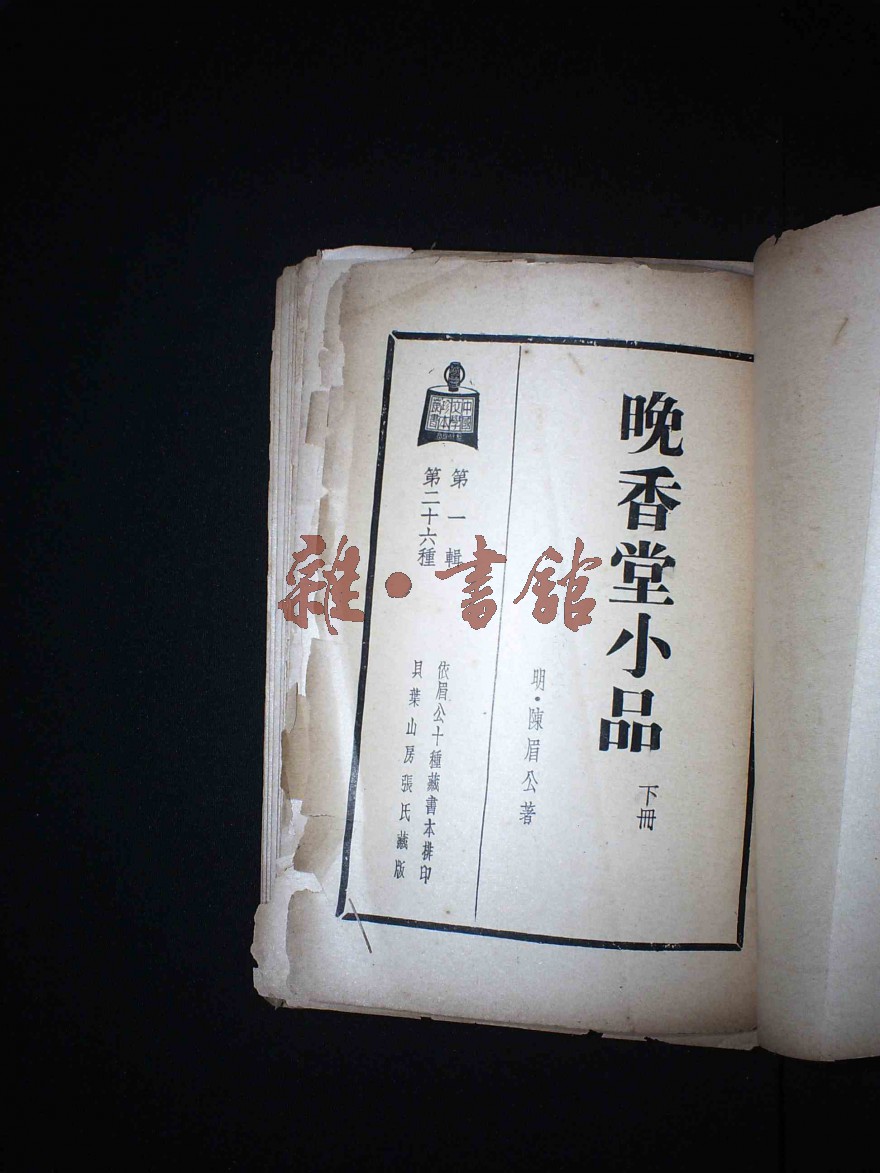 晚香堂小品
下冊
明·陳眉公著
中國
文學
珍本
叢書
第一輯
第二十六種
依眉公十種藏書本排印
貝葉山房張氏藏版
雜·書館